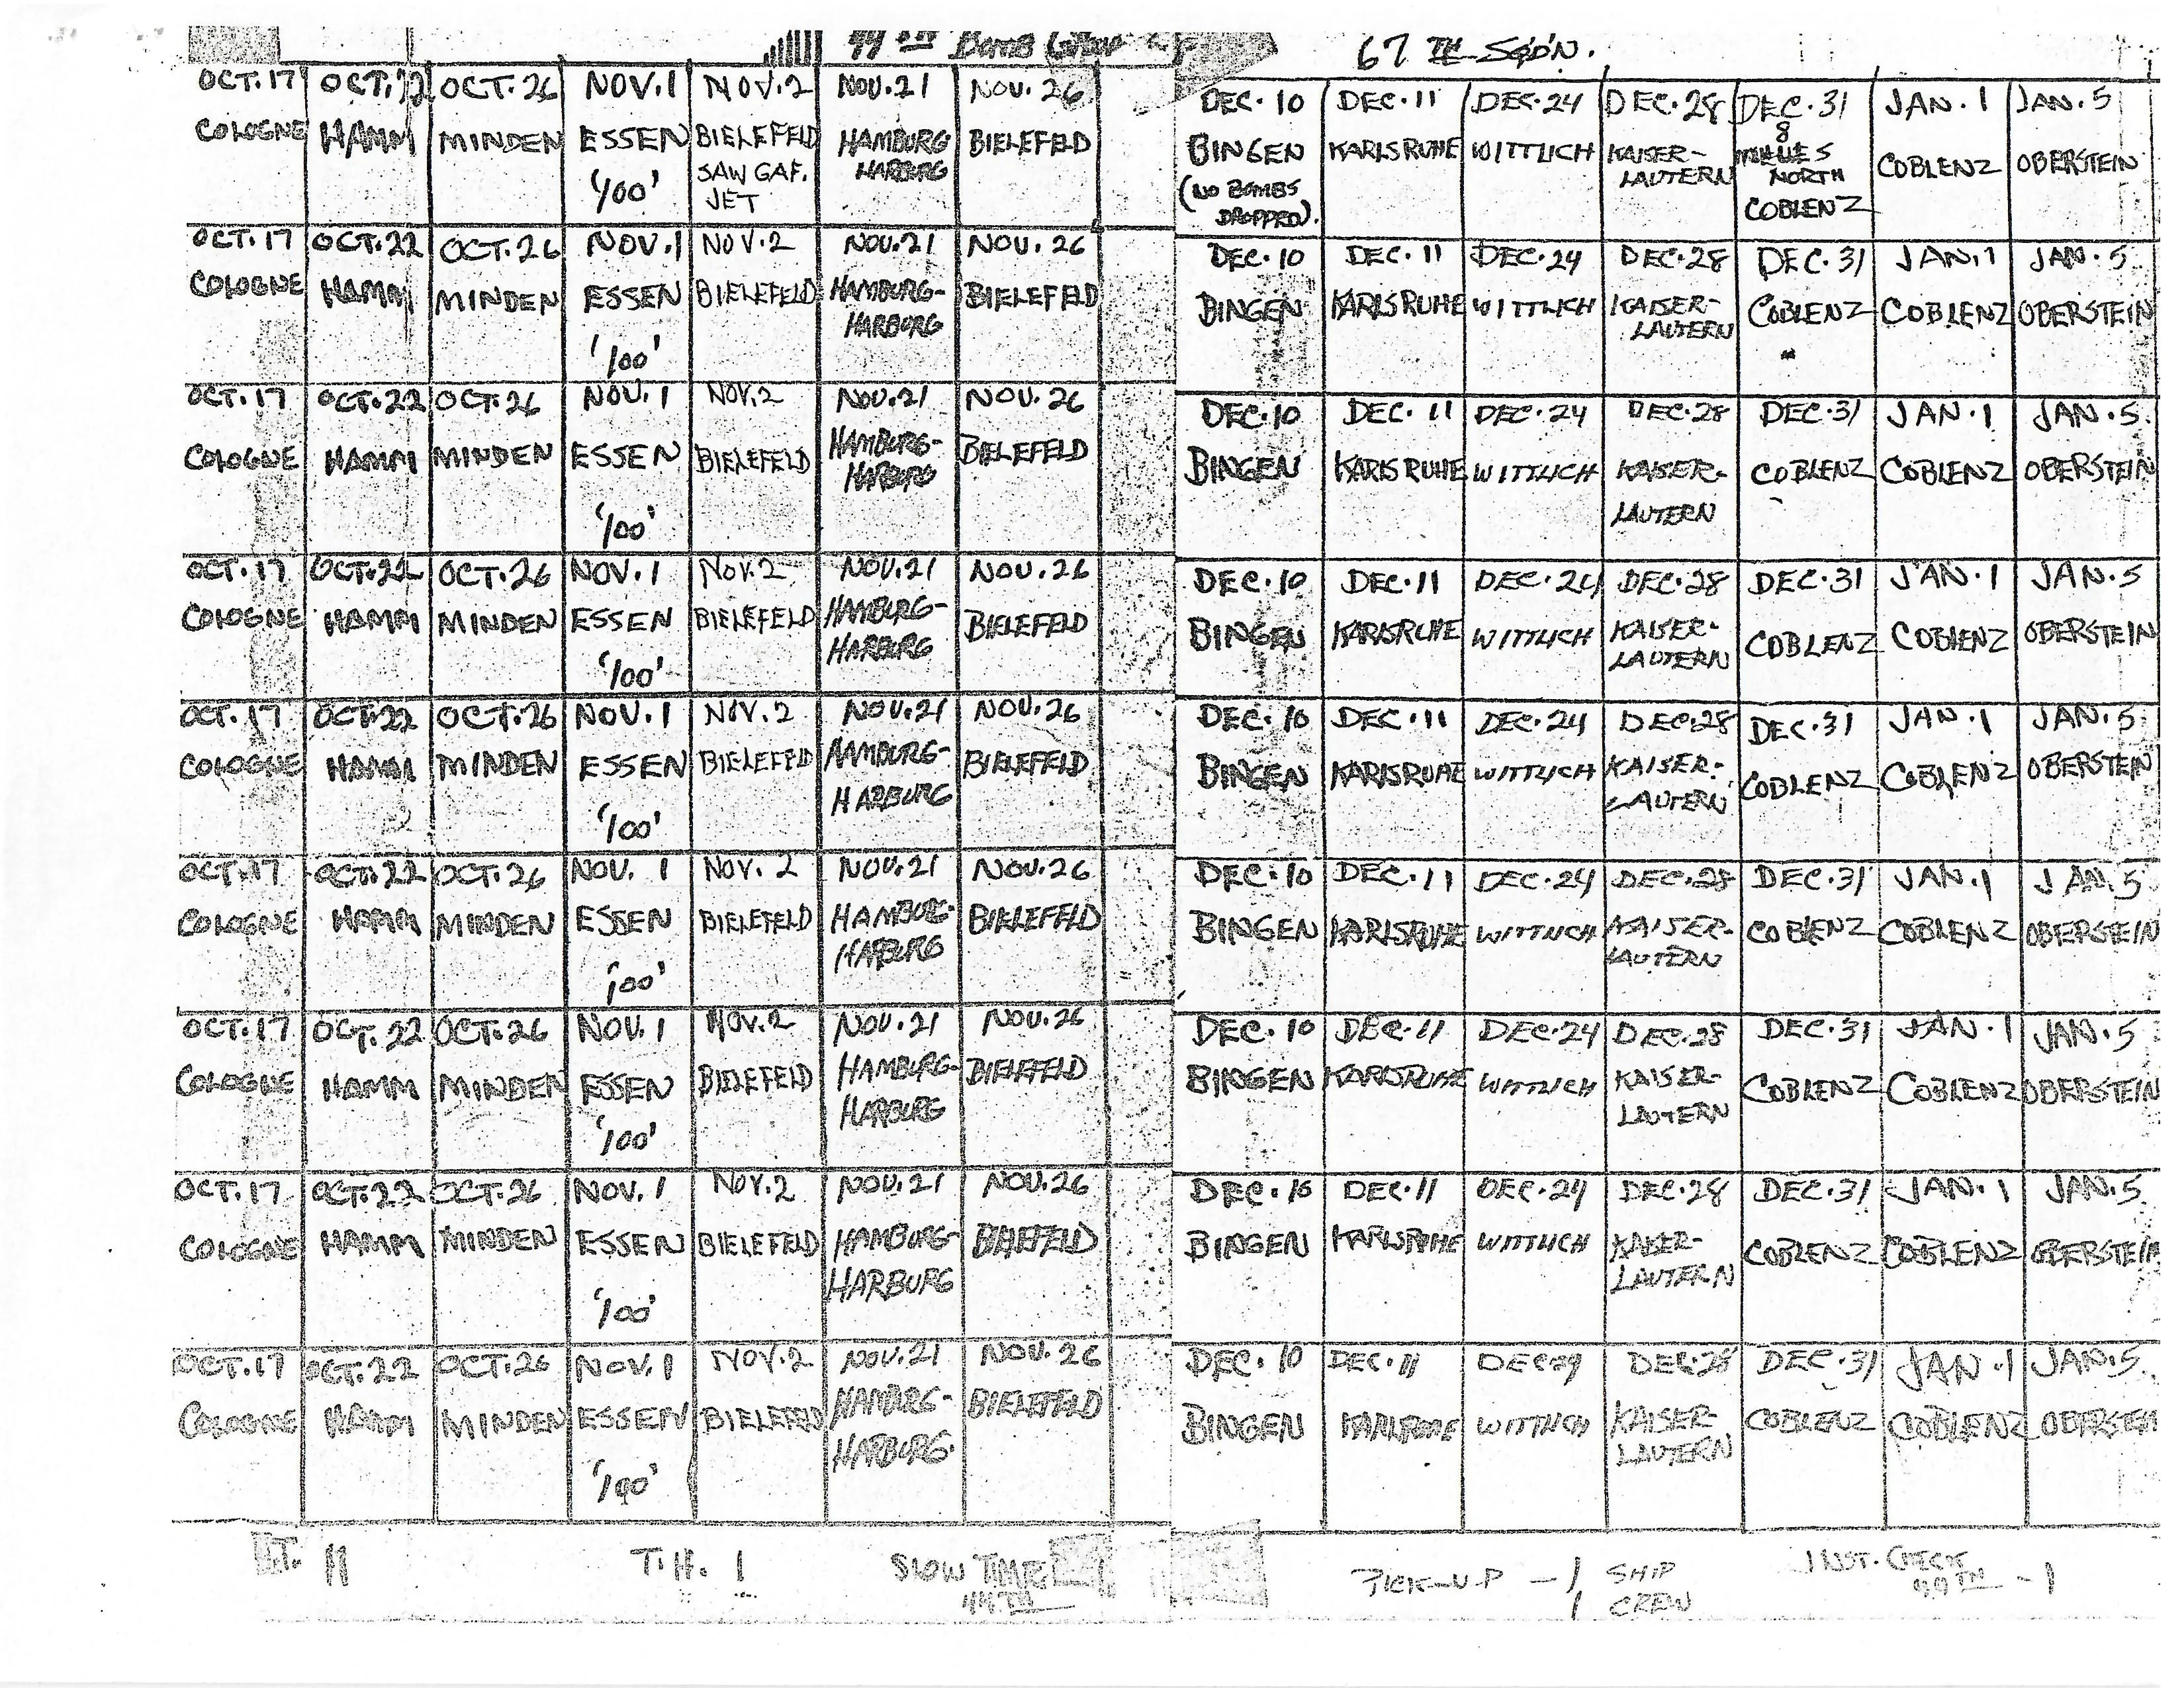 44TH BOMB GROUP 67TH SQD'N.
OCT. 17 OCT. 22 OCT. 26 NOV. 1 NOV. 2 NOV. 21 NOV. 26 DEC. 10 DEC. 11 DEC. 24 DEC. 28 DEC. 31 JAN. 1 JAN. 5
COLOGNE HAMM MINDEN ESSEN BIELEFELD HAMBURG BIELEFELD BINGEN KARLSRUHE WITTLICH KAISER- 8 MILES COBLENZ OBERSTEIN
'100' SAW GAF. HARBURG (NO BOMBS LAUTERN NORTH
JET DROPPED). COBLENZ
OCT. 17 OCT. 22 OCT. 26 NOV. 1 NOV. 2 NOV. 21 NOV. 26 DEC. 10 DEC. 11 DEC. 24 DEC. 28 DEC. 31 JAN. 1 JAN. 5
COLOGNE HAMM MINDEN ESSEN BIELEFELD HAMBURG- BIELEFELD BINGEN KARLSRUHE WITTLICH KAISER- COBLENZ COBLENZ OBERSTEIN
HARBURG LAUTERN
'100'
OCT. 17 OCT. 22 OCT. 26 NOV. 1 NOV. 2 NOV. 21 NOV. 26 DEC. 10 DEC. 11 DEC. 24 DEC. 28 DEC. 31 JAN. 1 JAN. 5.
COLOGNE HAMM MINDEN ESSEN BIELEFELD HAMBURG- BIELEFELD BINGEN KARLSRUHE WITTLICH KAISER- COBLENZ COBLENZ OBERSTEIN
HARBURG LAUTERN
'100'
OCT. 17 OCT. 22 OCT. 26 NOV. 1 NOV. 2 NOV. 21 NOV. 26 DEC. 10 DEC. 11 DEC. 24 DEC. 28 DEC. 31 JAN. 1 JAN. 5
COLOGNE HAMM MINDEN ESSEN BIELEFELD HAMBURG- BIELEFELD BINGEN KARLSRUHE WITTLICH KAISER- COBLENZ COBLENZ OBERSTEIN
HARBURG LAUTERN
'100'
OCT. 17 OCT. 22 OCT. 26 NOV. 1 NOV. 2 NOV. 21 NOV. 26 DEC. 10 DEC. 11 DEC. 24 DEC. 28 DEC. 31 JAN. 1 JAN. 5
COLOGNE HAMM MINDEN ESSEN BIELEFELD HAMBURG- BIELEFELD BINGEN KARLSRUHE WITTLICH KAISER- COBLENZ COBLENZ OBERSTEIN
HARBURG LAUTERN
'100'
OCT. 17 OCT. 22 OCT. 26 NOV. 1 NOV. 2 NOV. 21 NOV. 26 DEC. 10 DEC. 11 DEC. 24 DEC. 28 DEC. 31 JAN. 1 JAN. 5
COLOGNE HAMM MINDEN ESSEN BIELEFELD HAMBURG- BIELEFELD BINGEN KARLSRUHE WITTLICH KAISER- COBLENZ COBLENZ OBERSTEIN
HARBURG LAUTERN
'100'
OCT. 17 OCT. 22 OCT. 26 NOV. 1 NOV. 2 NOV. 21 NOV. 26 DEC. 10 DEC. 11 DEC. 24 DEC. 28 DEC. 31 JAN. 1 JAN. 5
COLOGNE HAMM MINDEN ESSEN BIELEFELD HAMBURG- BIELEFELD BINGEN KARLSRUHE WITTLICH KAISER- COBLENZ COBLENZ OBERSTEIN
HARBURG LAUTERN
'100'
OCT. 17 OCT. 22 OCT. 26 NOV. 1 NOV. 2 NOV. 21 NOV. 26 DEC. 10 DEC. 11 DEC. 24 DEC. 28 DEC. 31 JAN. 1 JAN. 5
COLOGNE HAMM MINDEN ESSEN BIELEFELD HAMBURG- BIELEFELD BINGEN KARLSRUHE WITTLICH KAISER- COBLENZ COBLENZ OBERSTEIN
HARBURG LAUTERN
'100'
OCT. 17 OCT. 22 OCT. 26 NOV. 1 NOV. 2 NOV. 21 NOV. 26 DEC. 10 DEC. 11 DEC 29 DEC. 28 DEC. 31 JAN. 1 JAN. 5
COLOGNE HAMM MINDEN ESSEN BIELEFELD HAMBURG- BIELEFELD BINGEN KARLSRUHE WITTLICH KAISER- COBLENZ COBLENZ OBERSTEIN
HARBURG. LAUTERN
'100'
11 T.H. 1 SLOW TIME PICK-UP - 1 SHIP INST. CHECK
44TH 1 CREW 44TH - 1